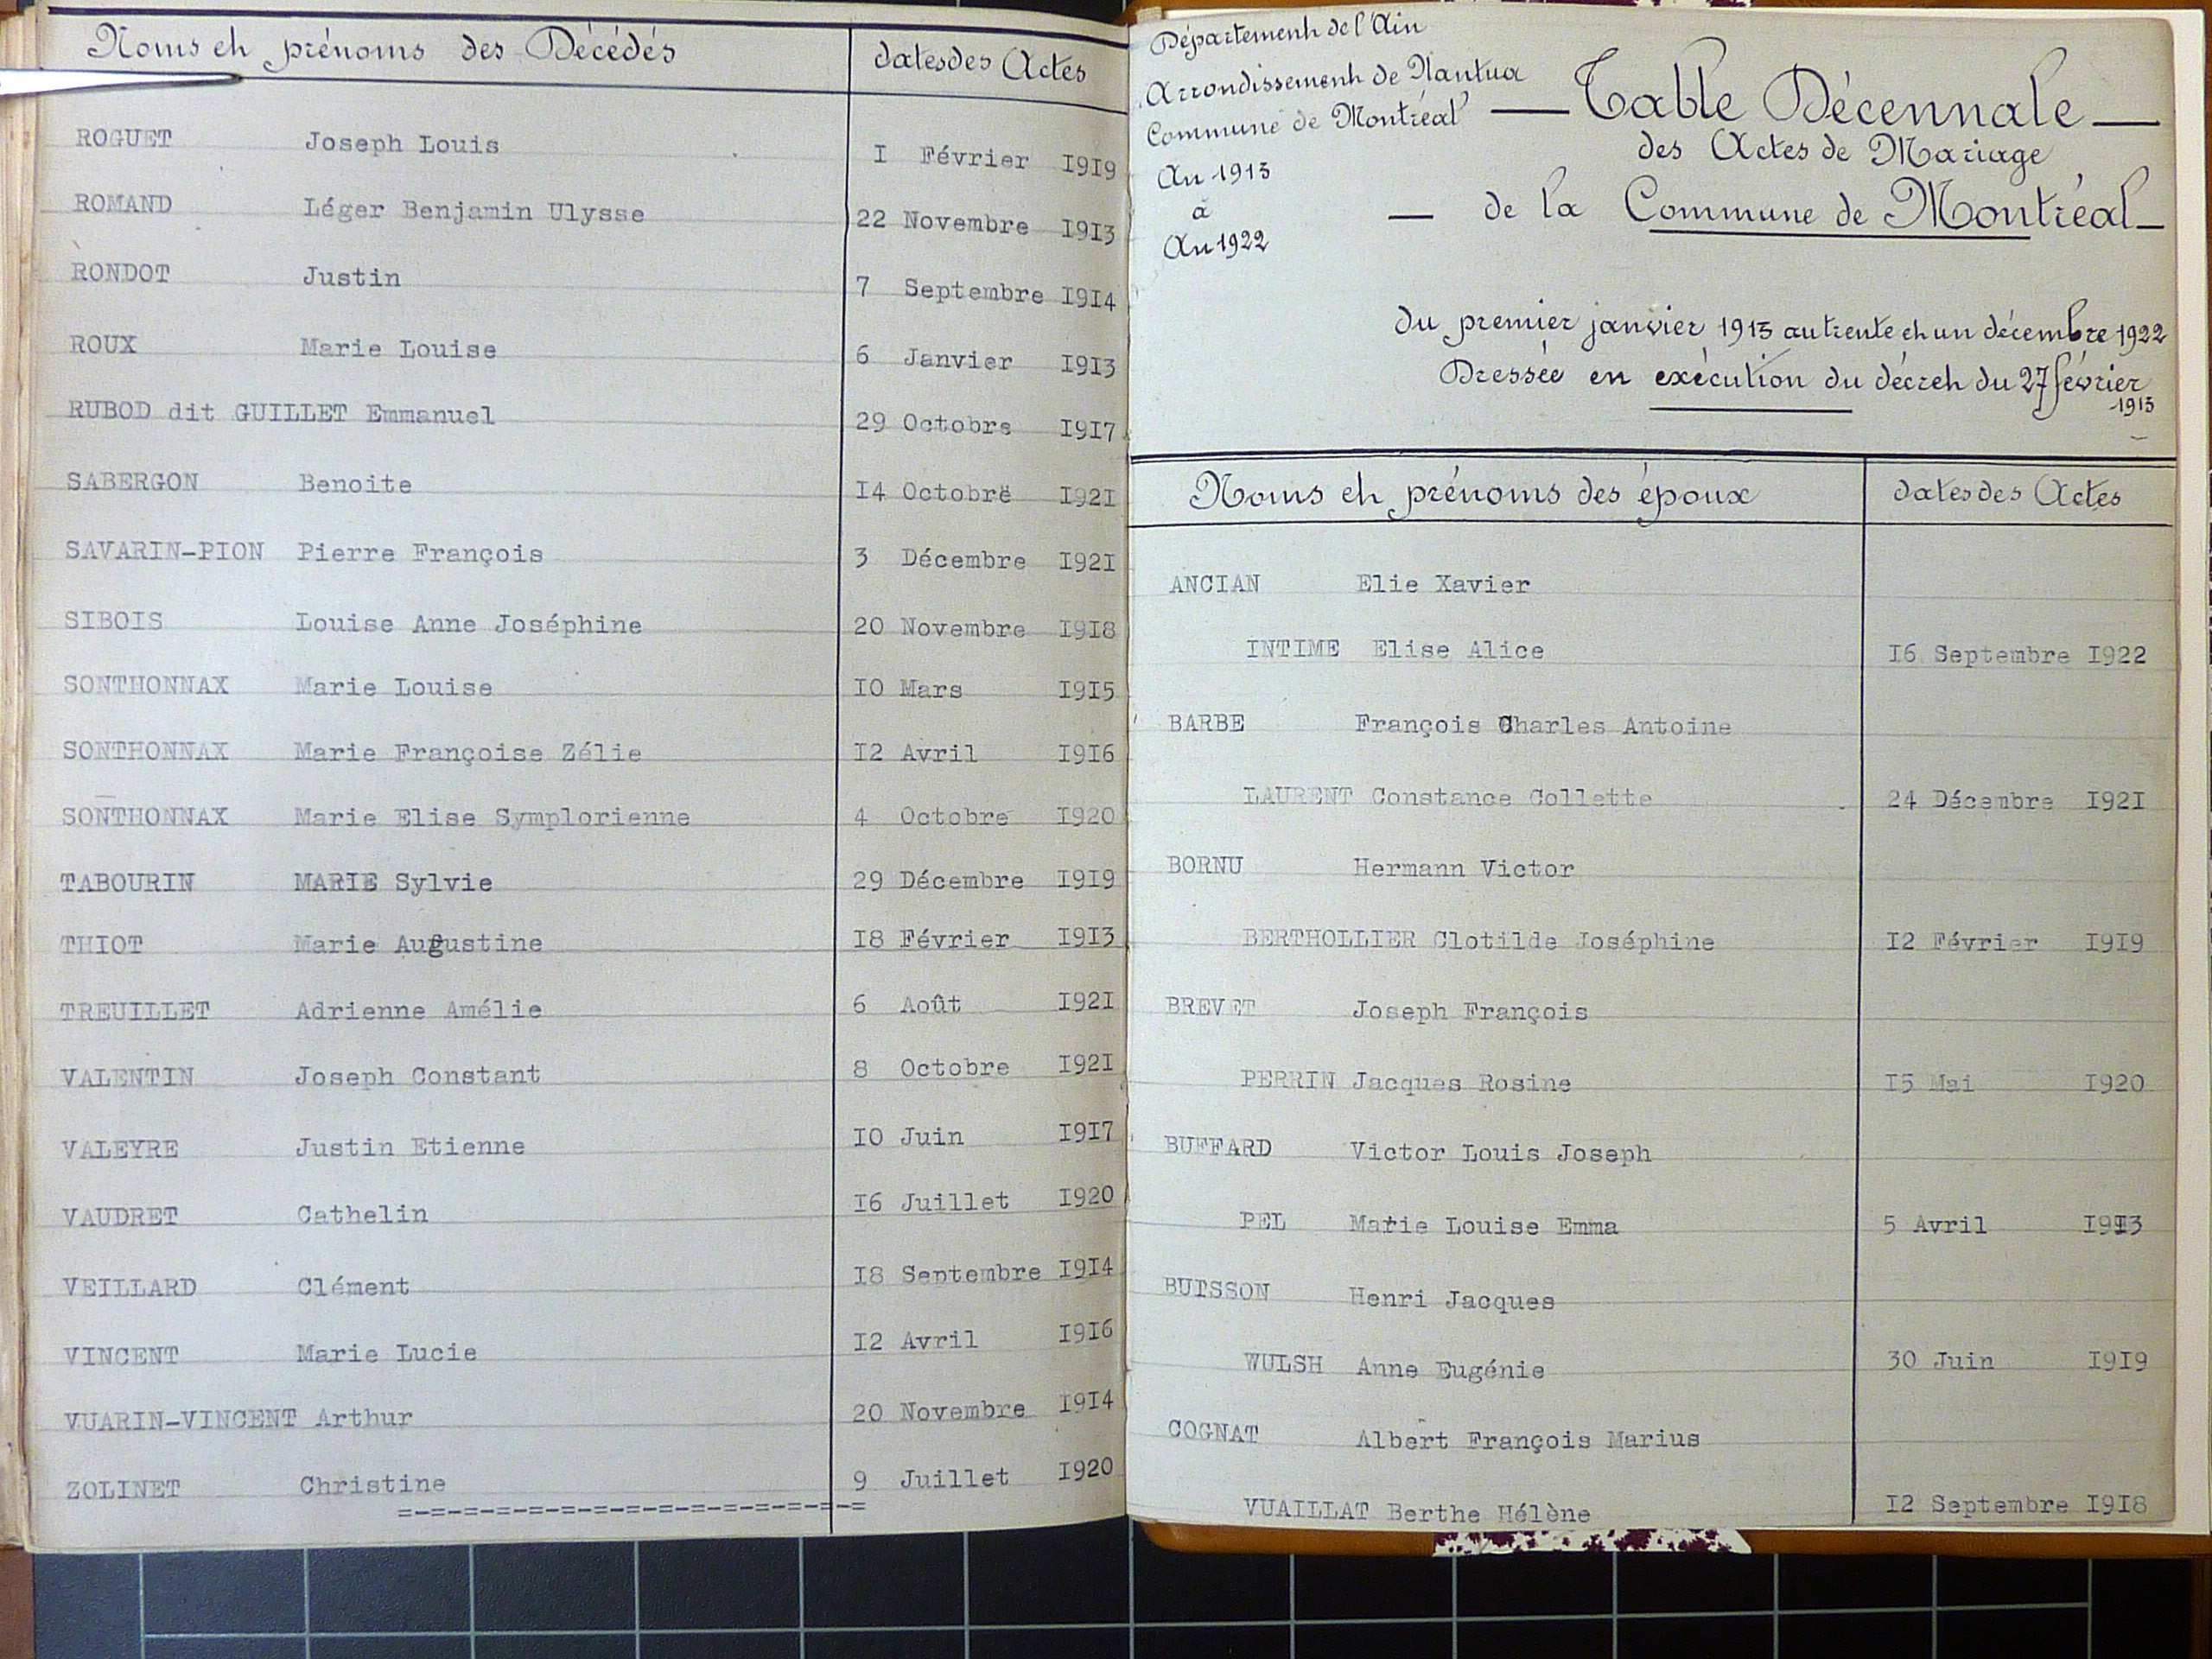 Noms et prénoms des Décédés dates des Actes
ROGUET Joseph Louis I Février I9I9
ROMAND Léger Benjamin Ulysse 22 Novembre I9I3
RONDOT Justin 7 Septembre I9I4
ROUX Marie Louise 6 Janvier I9I3
RUBOD dit GUILLET Emmanuel 29 Octobre I9I7
SABERGON Benoite I4 Octobre I92I
SAVARIN-PION Pierre François 3 Décembre I92I
SIBOIS Louise Anne Joséphine 20 Novembre I9I8
SONTHONNAX Marie Louise IO Mars I9I5
SONTHONNAX Marie Françoise Zélie I2 Avril I9I6
SONTHONNAX Marie Elise Symplorienne 4 Octobre I920
TABOURIN MARIE Sylvie 29 Décembre I9I9
THIOT Marie Augustine I8 Février I9I3
TREUILLET Adrienne Amélie 6 Août I92I
VALENTIN Joseph Constant 8 Octobre I92I
VALEYRE Justin Etienne IO Juin I9I7
VAUDRET Cathelin I6 Juillet I920
VEILLARD Clément I8 Septembre I9I4
VINCENT Marie Lucie I2 Avril I9I6
VUARIN-VINCENT Arthur 20 Novembre I9I4
ZOLINET Christine 9 Juillet I920
=-=-=-=-=-=-=-=-=-=-=-=-=-=-=
Département de l'Ain
Arrondissement de Nantua
Commune de Montréal
An 1913
à
An 1922
— Table Décennale —
des Actes de Mariage
— de la Commune de Montréal —
du premier janvier 1913 au trente et un décembre 1922
Dressée en exécution du décret du 27 février
1913
Noms et prénoms des époux dates des Actes
ANCIAN Elie Xavier
INTIME Elise Alice I6 Septembre I922
BARBE François Charles Antoine
LAURENT Constance Collette 24 Décembre I92I
BORNU Hermann Victor
BERTHOLLIER Clotilde Joséphine I2 Février I9I9
BREVET Joseph François
PERRIN Jacques Rosine I5 Mai I920
BUFFARD Victor Louis Joseph
PEL Marie Louise Emma 5 Avril I9I3
BUISSON Henri Jacques
WULSH Anne Eugénie 30 Juin I9I9
COGNAT Albert François Marius
VUAILLAT Berthe Hélène I2 Septembre I9I8